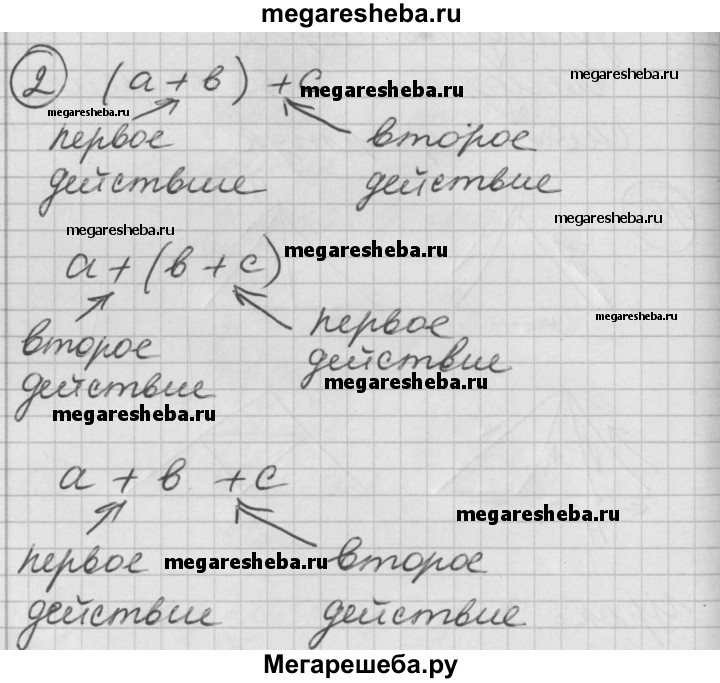 megaresheba.ru
2 (а + в) + с
megaresheba.ru
megaresheba.ru
megaresheba.ru
первое второе
действие действие
megaresheba.ru
megaresheba.ru
а + (в + с)
megaresheba.ru
megaresheba.ru
второе первое
действие действие
megaresheba.ru
megaresheba.ru
а + в + с
megaresheba.ru
первое второе
megaresheba.ru
действие действие
Мегарешеба.ру